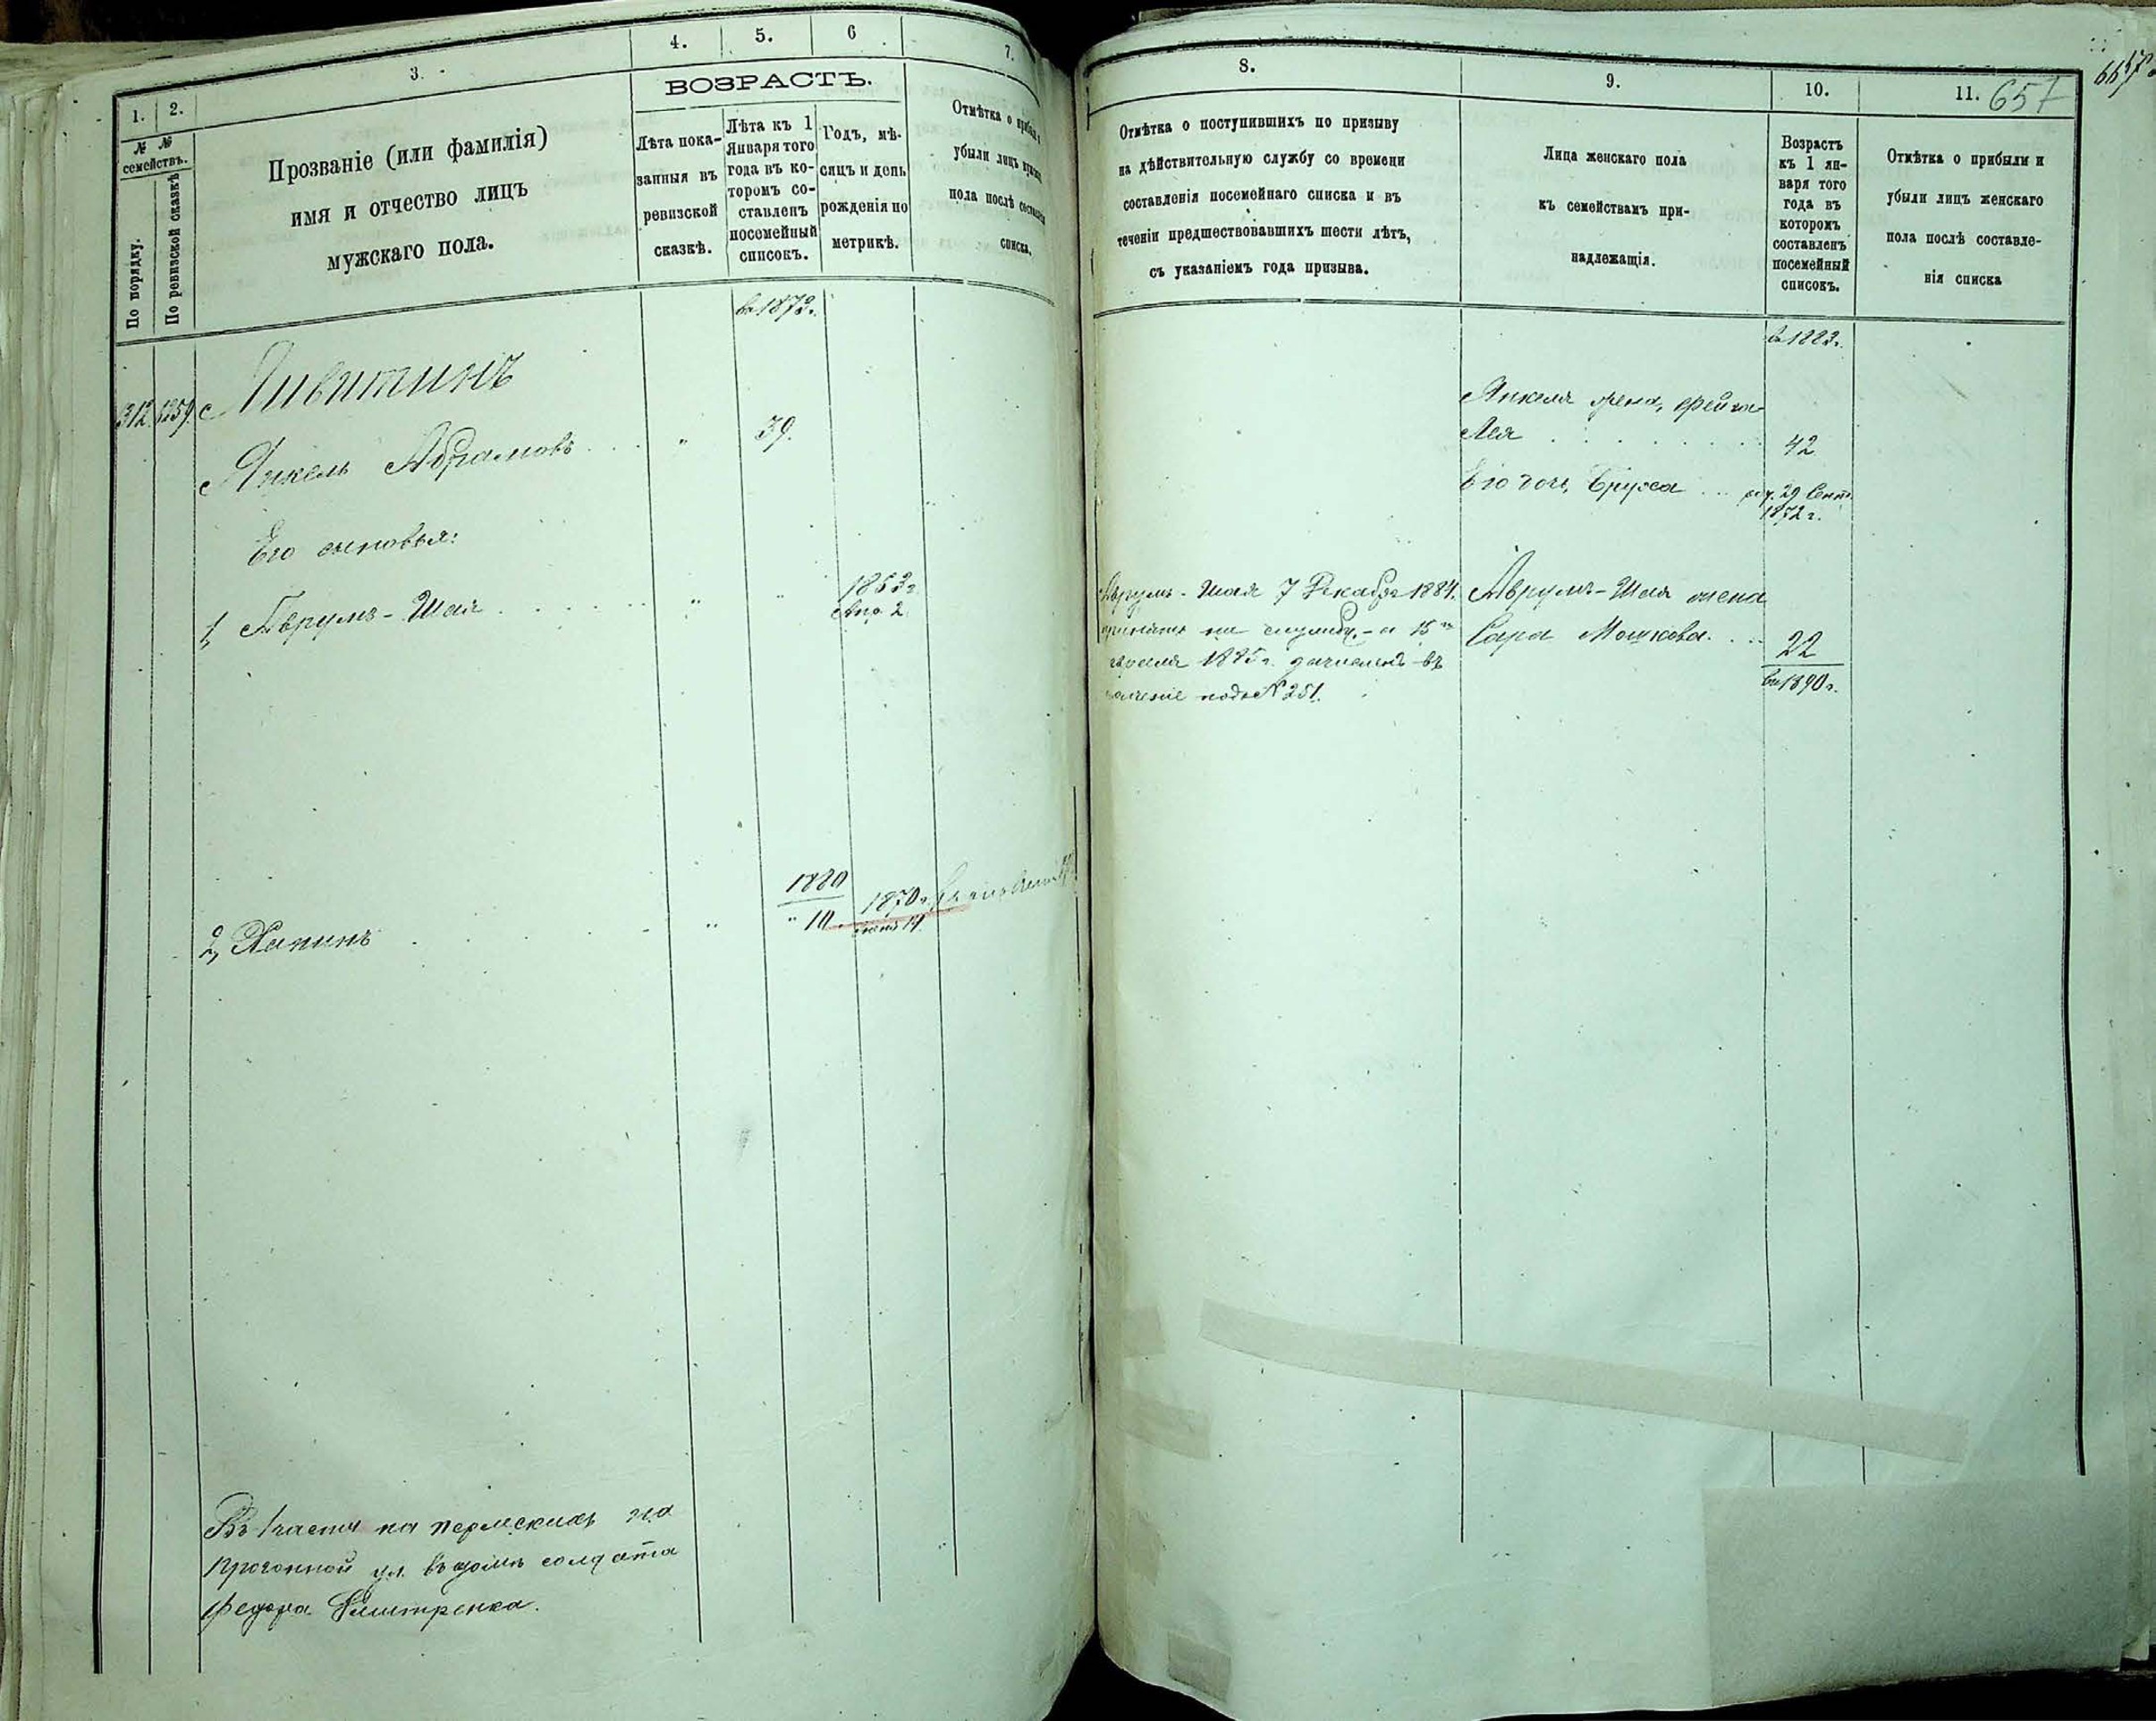 1.
2.
3.
4.
5.
6
7.
ВОЗРАСТЪ.
№ №
семействъ.
По порядку.
По ревизской сказкѣ
Прозваніе (или фамилія)
имя и отчество лицъ
мужскаго пола.
Лѣта пока-
занныя въ
ревизской
сказкѣ.
Лѣта къ 1
Января того
года въ ко-
торомъ со-
ставленъ
посемейный
списокъ.
Годъ, мѣ-
сяцъ и день
рожденія по
метрикѣ.
Отмѣтка о
убыли лицъ
пола послѣ
списка.
312
1259
39.
Янкель Абрамовъ
Его сыновья:
1, Аврумъ-Шая
2
2, Хапинъ
1880
10
1870
14
Въ части на
ул. въ домѣ солдата
Федора
8.
9.
10.
11.
657
Отмѣтка о поступившихъ по призыву
на дѣйствительную службу со времени
составленія посемейнаго списка и въ
теченіи предшествовавшихъ шести лѣтъ,
съ указаніемъ года призыва.
Лица женскаго пола
къ семействамъ при-
надлежащія.
Возрастъ
къ 1 ян-
варя того
года въ
которомъ
составленъ
посемейный
списокъ.
Отмѣтка о прибыли и
убыли лицъ женскаго
пола послѣ составле-
нія списка
Янкеля жена, Фейга-
Лея
42
Его дочь Бруха
29 Сент.
1872 г.
Шая 7 Декабря 1884.
на службу, а 15
1885 г. зачисленъ въ
подъ № 251.
Аврумъ-Шая жена
Сара Мошкова
22
въ 1890 г.